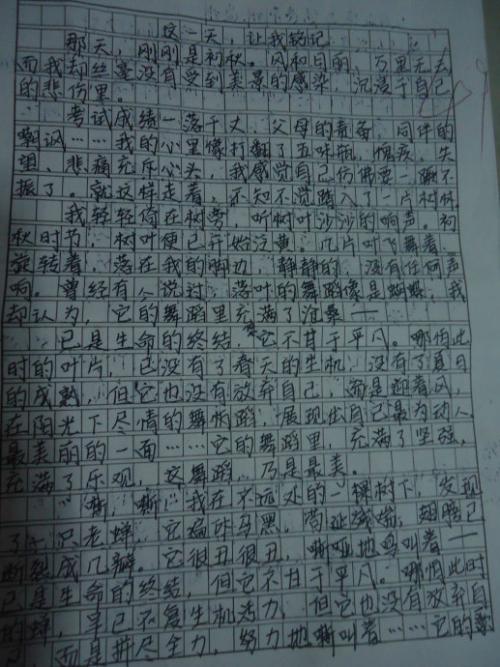 这一天，让我铭记
那天，刚刚是初秋。风和日丽，万里无云
而我却丝毫没有受到美景的感染，沉浸于自己
的悲伤里。
考试成绩一落千丈，父母的责备，同伴的
嘲讽……我的心里像打翻了五味瓶，愧疚、失
望、悲痛充斥心头，我感觉自己仿佛要一蹶不
振了。就这样走着，不知不觉踏入了一片树林
我轻轻倚在树旁，听树叶沙沙的响声。初
秋时节，树叶便已开始泛黄，几片叶飞舞着，
旋转着，落在我的脚边，静静的，没有任何声
响。曾经有人说过，落叶的舞蹈像是蝴蝶，我
却认为，它的舞蹈里充满了沧桑——
已是生命的终结，它不甘于平凡。哪怕此
时的叶片，已没有了春天的生机，没有了夏日
的成熟，但它也没有放弃自己，而是迎着风，
在阳光下尽情的舞蹈，展现出自己最为动人
最美丽的一面……它的舞蹈里，充满了坚强，
充满了乐观，这舞蹈，乃是最美。
“嘶，嘶”我在不远处的一棵树下，发现
了一只老蝉，它遍体乌黑，翅膀已
断裂成几瓣。它很丑很丑，嘶哑地鸣叫着——
已是生命的终结，但它不甘于平凡。哪怕此时
的蝉，早已不复生机活力，但它也没有放弃自
己，而是拼尽全力，努力地嘶叫着……它的